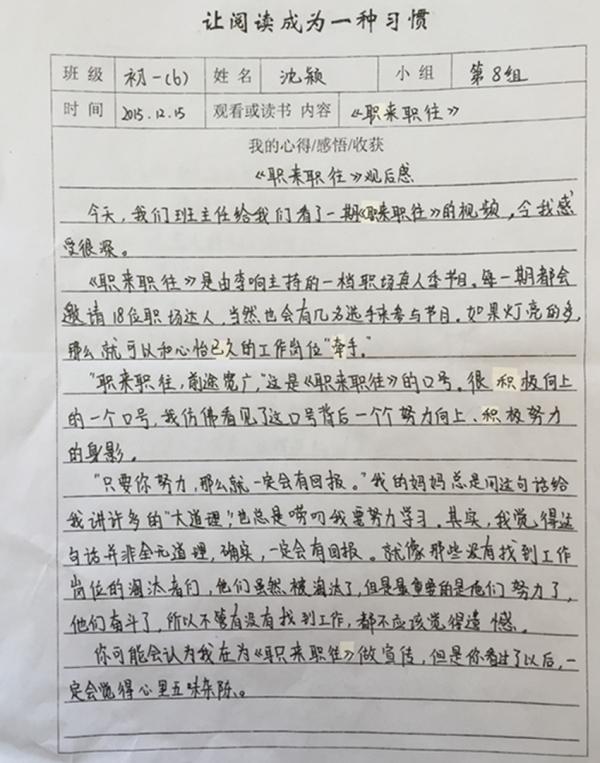 让阅读成为一种习惯
班级 初一(6) 姓名 沈颖 小组 第8组
时间 2015.12.15 观看或读书 内容 《职来职往》
我的心得/感悟/收获
《职来职往》观后感
今天,我们班主任给我们看了一期《职来职往》的视频,令我感
受很深。
《职来职往》是由李响主持的一档职场真人季节目。每一期都会
邀请18位职场达人,当然也会有几名选手来参与节目。如果灯亮的多,
那么就可以和心怡已久的工作岗位“牵手。”
“职来职往,前途宽广,”这是《职来职往》的口号。很积极向上
的一个口号,我仿佛看见了这口号背后一个个努力向上、积极努力
的身影。
“只要你努力,那么就一定会有回报。”我的妈妈总是用这句话给
我讲许多的“大道理”,也总是唠叨我要努力学习。其实,我觉得这
句话并非全无道理,确实,一定会有回报。就像那些没有找到工作
岗位的淘汰者们,他们虽然被淘汰了,但是最重要的是他们努力了,
他们奋斗了,所以不管有没有找到工作,都不应该觉得遗憾。
你可能会认为我在为《职来职往》做宣传,但是你看过了以后,一
定会觉得心里五味杂陈。